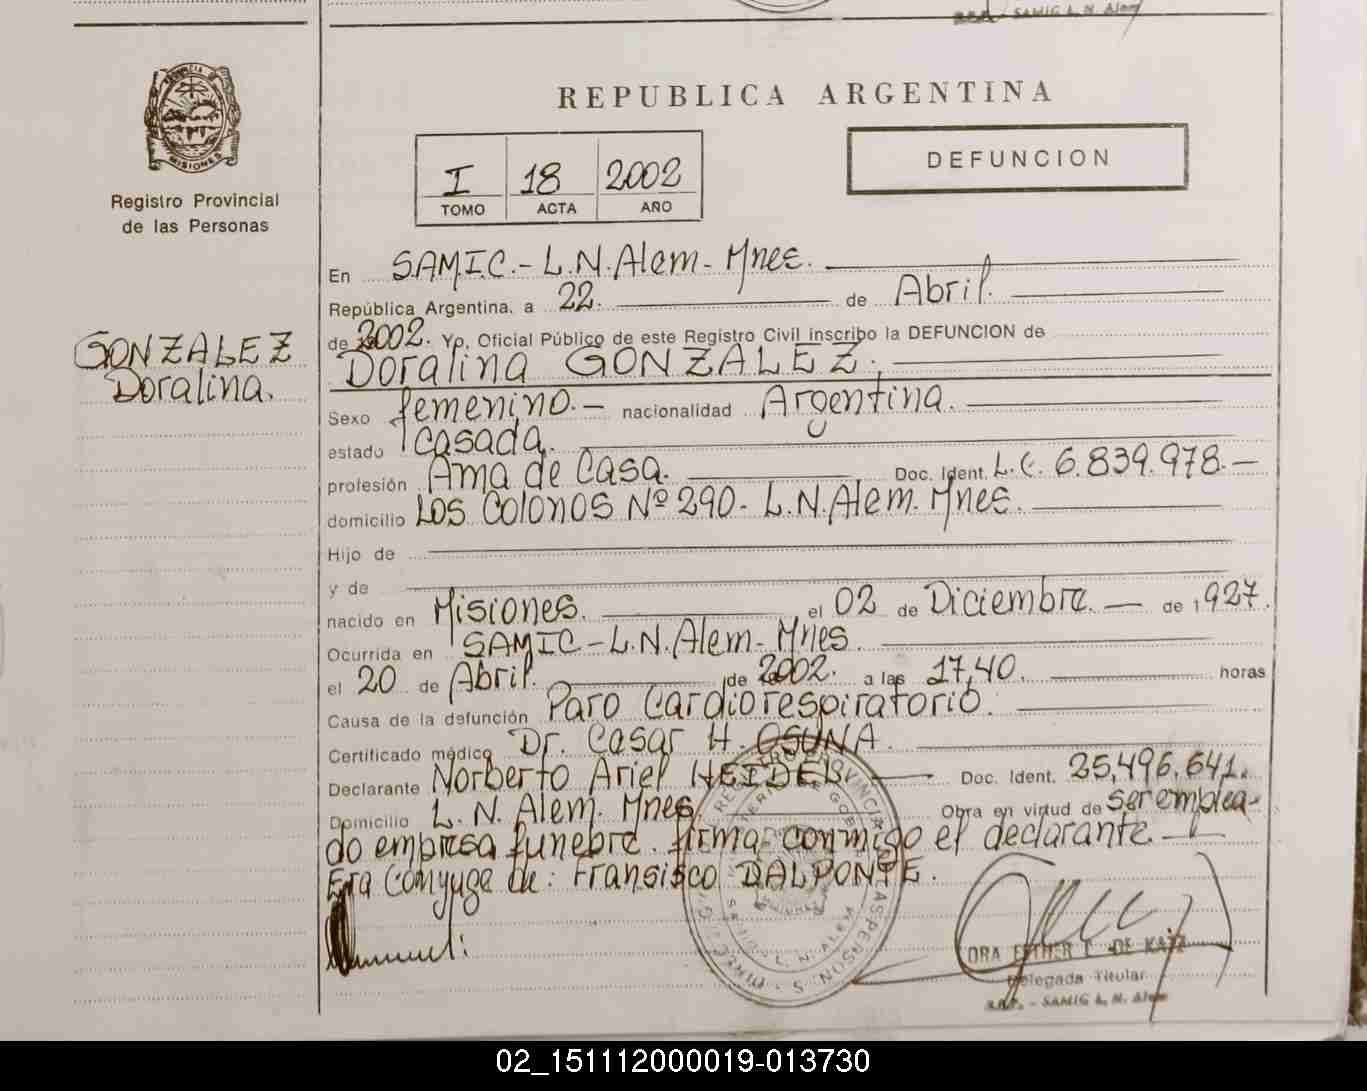 S.R.P. - SAMIG L. N. Alem
PROVINCIA DE
MISIONES
Registro Provincial
de las Personas
GONZALEZ
Doralina.
REPUBLICA ARGENTINA
I 18 2002
TOMO ACTA AÑO
DEFUNCION
En S.A.M.I.C.- L.N.Alem- Mnes.
República Argentina, a 22. de Abril.
de 2002. Yo, Oficial Público de este Registro Civil inscribo la DEFUNCION de
Doralina GONZALEZ.
Sexo femenino.- nacionalidad Argentina.
estado casada.
profesión Ama de Casa. Doc. Ident. L.C. 6.839.978.-
domicilio Los Colonos Nº 290- L.N.Alem. Mnes.
Hijo de
y de
nacido en Misiones. el 02 de Diciembre.- de 1927.
Ocurrida en SAMIC-L.N.Alem- Mnes.
el 20 de Abril. de 2002. a las 17,40. horas
Causa de la defunción Paro Cardiorespiratorio.
Certificado médico Dr. Cesar H. OSUNA.
Declarante Norberto Ariel HEIDER Doc. Ident. 25,496,641.
Domicilio L. N. Alem. Mnes. Obra en virtud de ser emplea-
do empresa funebre. firma conmigo el declarante.
Era Conyuge de: Fransisco DALPONTE.
DRA ESTHER C. DE KATZ
Delegada Titular
S.R.P. - SAMIG L. N. Alem
02_151112000019-013730